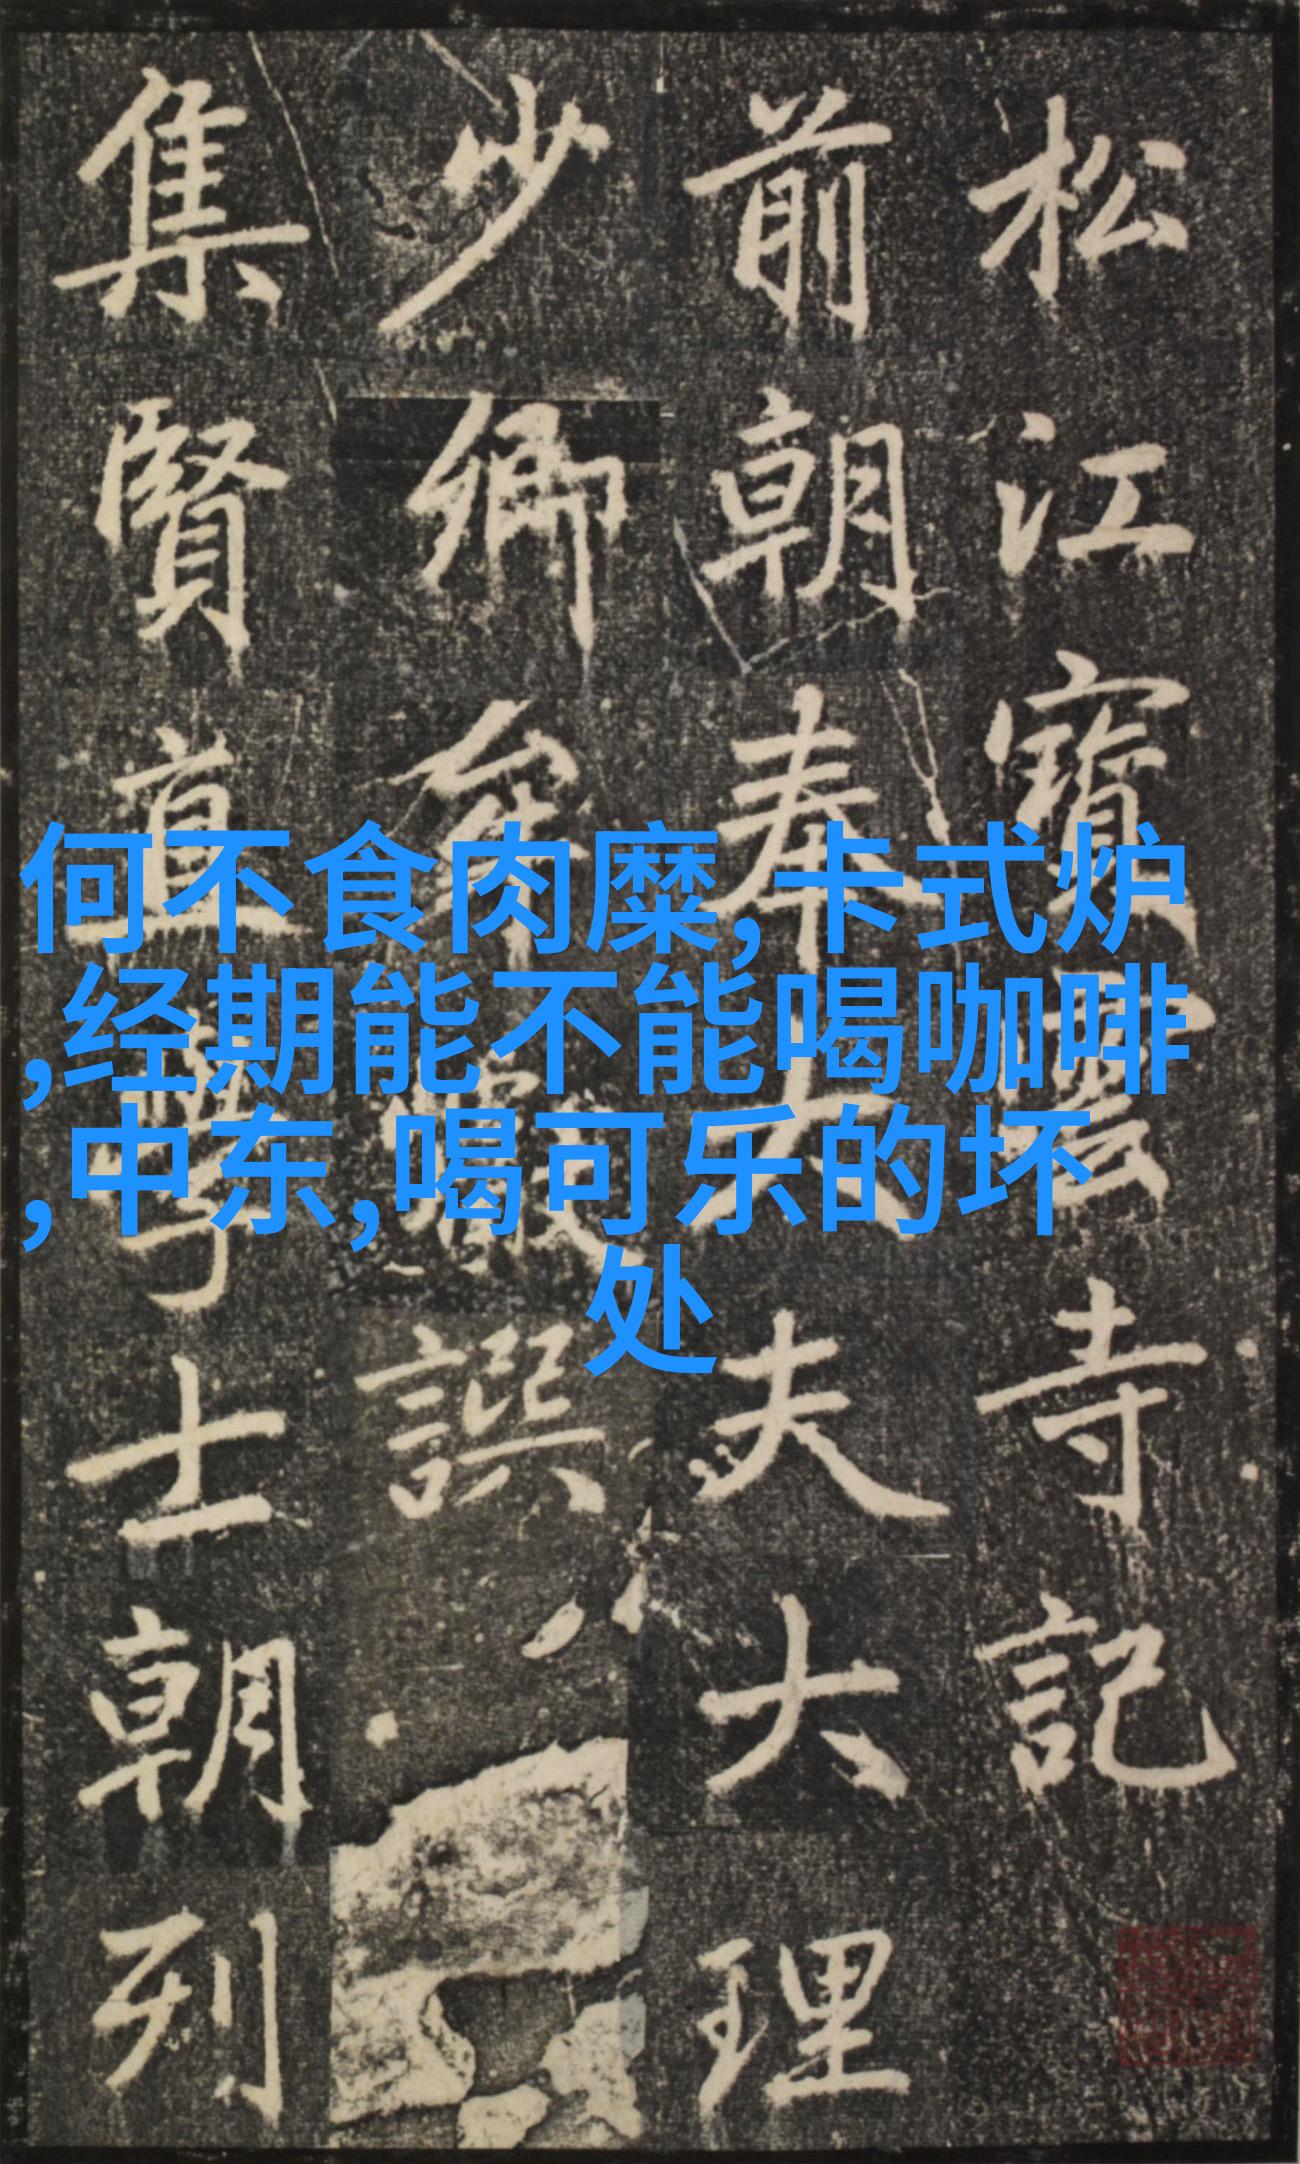 松江寶雲寺記
前朝奉大夫大理
少卿牟巘譔
集賢直學士朝列
何不食肉糜,卡式炉
,经期能不能喝咖啡
,中东,喝可乐的坏
处